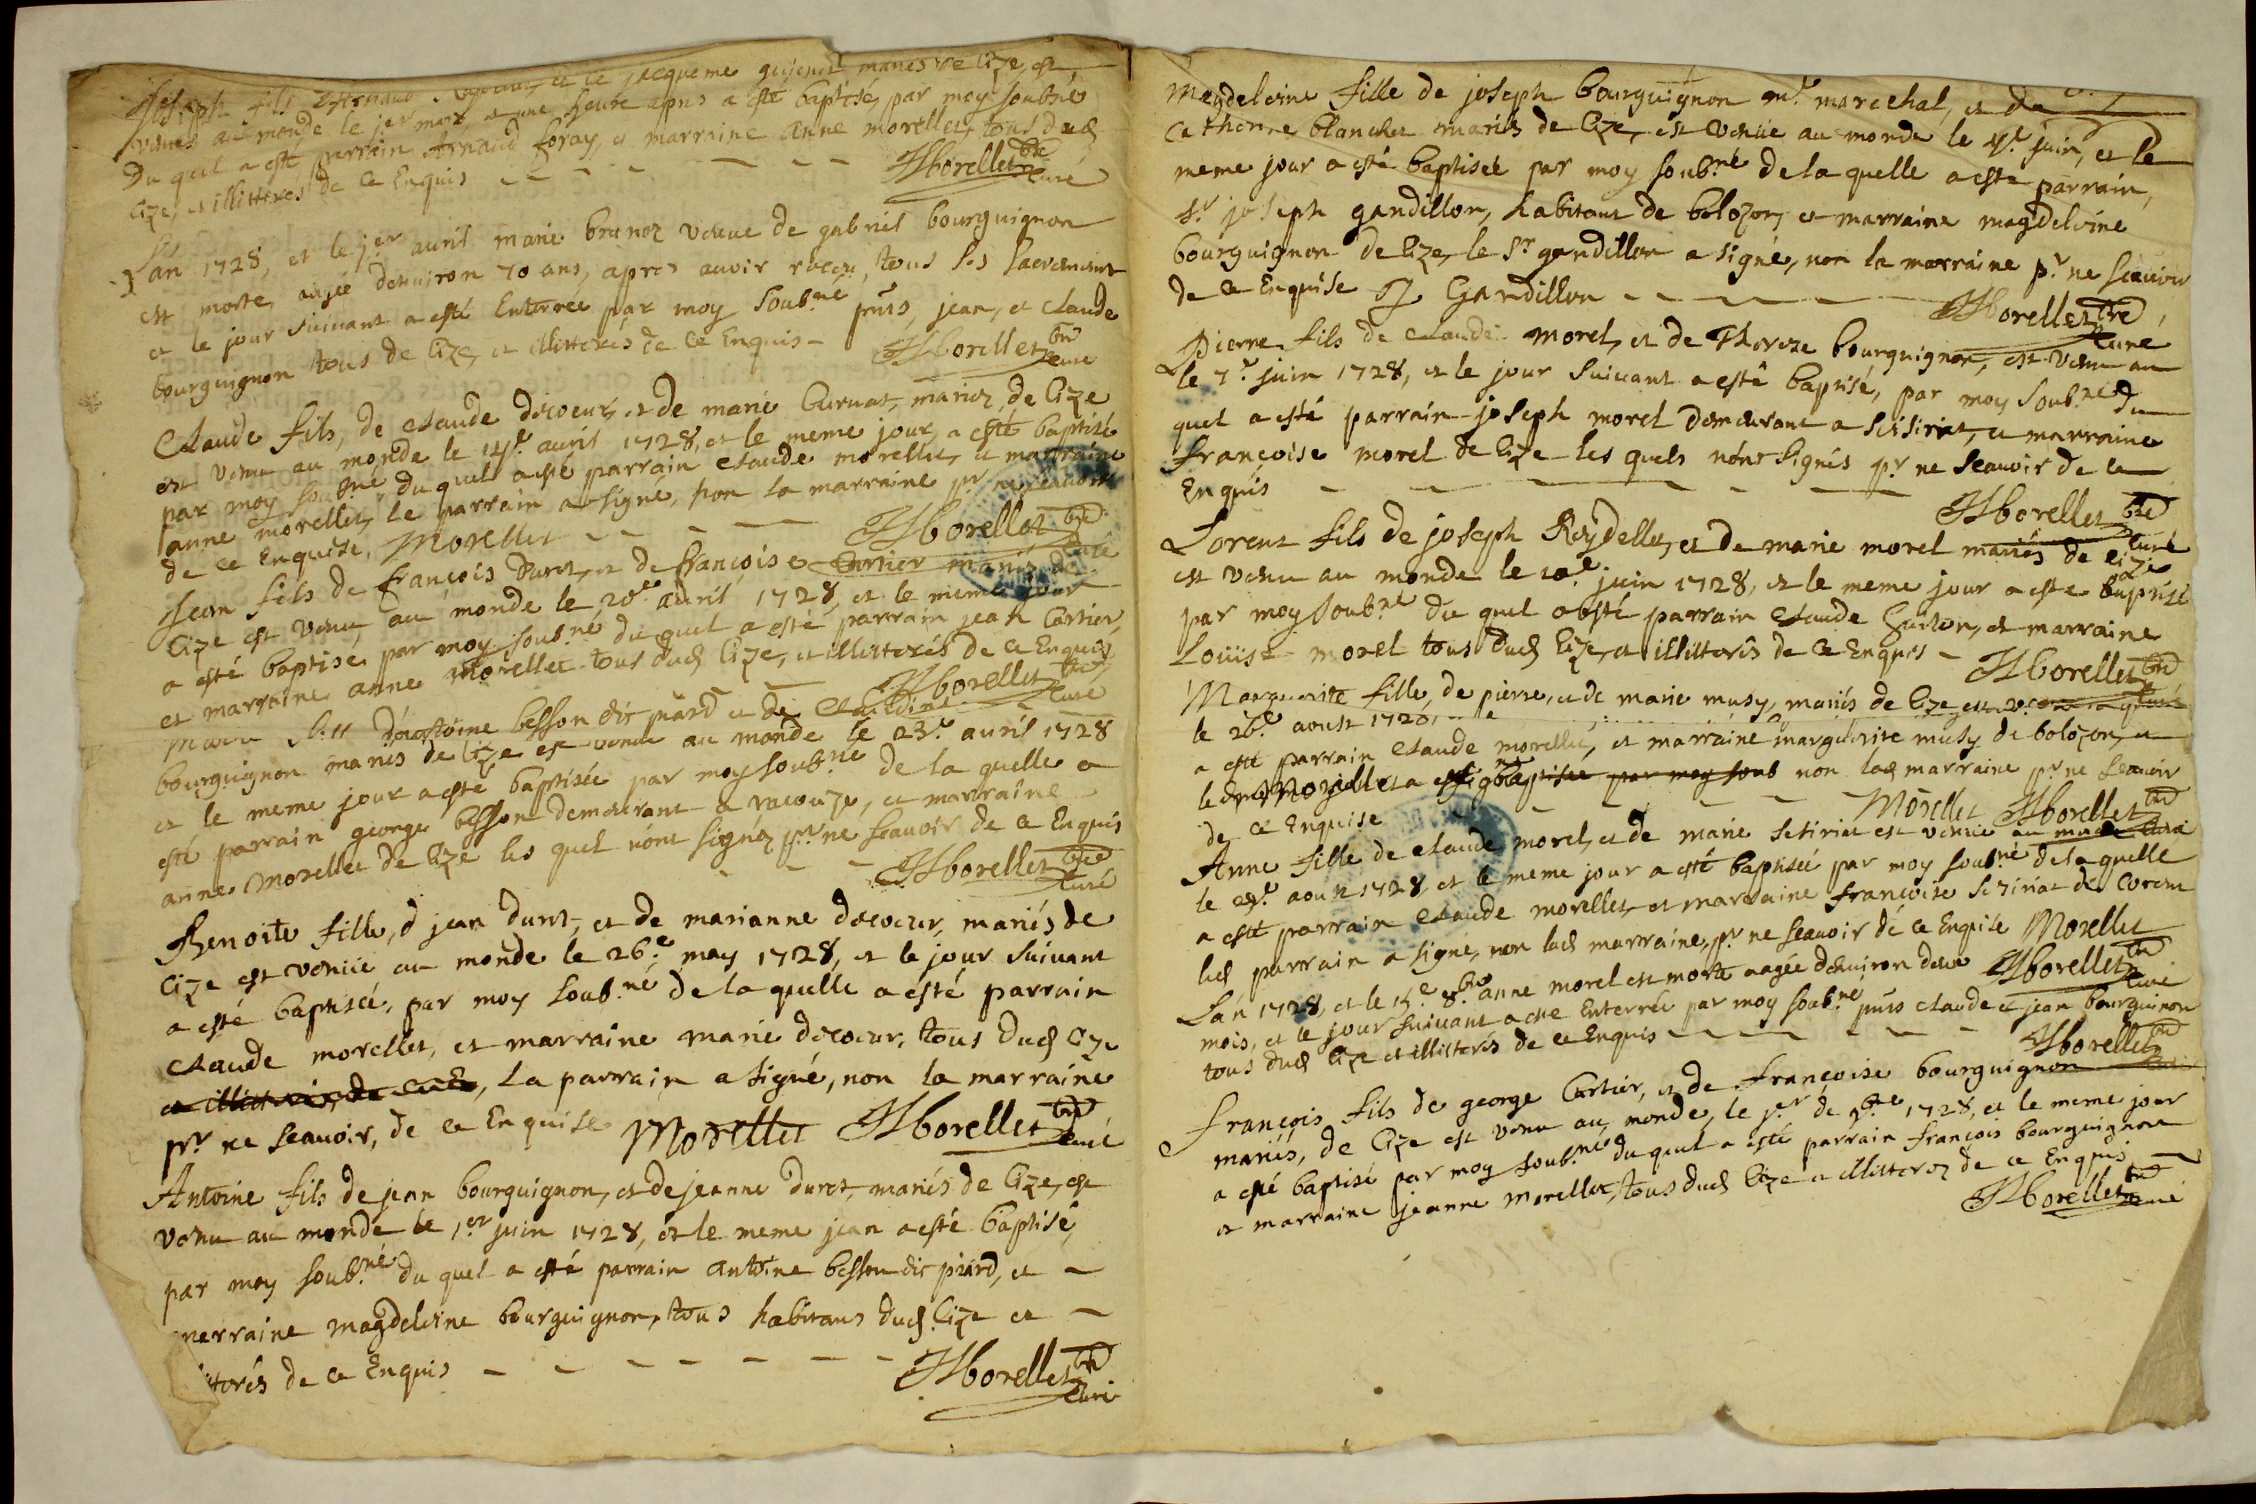 joseph fils et de jacqueme mariés de Cize, est
venus au monde le j.er mars, et une heure apres a esté baptisé par moy soubné
Du quel a esté parrain Arnaud foray, et marraine anne morellet, tous duď
Cize, et illitterés de ce Enquis - - - - - - HMorellet ptre
curé
L'an 1728, et le j.er auril marie brunoz veuue de gabriel bourguignon
est morte, aagée denuiron 70 ans, apres auoir receu, tous les Sacremens
et le jour suiuant a esté Enterrée par moy soub.né pñts, jean, et claude
bourguignon tous de Cize, et illitterés de ce Enquis - HMorellet ptre
curé
Claude fils, de claude decoeur, et de marie buruat, mariez de Cize
est venu au monde le auril 1728, et le meme jour, a esté baptisé
par moy soub.né du quel a esté parrain claude morellet, et marraine
anne morellet, le parrain a signé, non la marraine p.r ne scauoir
de ce Enquise. Morellet - - - HMorellet ptre
curé
Jean fils de françois Duret, et de françoise Cartier mariés de
Cize est venu au monde le 20.e auril 1728, et le meme jour
a esté baptisé par moy soub.né du quel a esté parrain jean Cartier,
et marraine anne Morellet tous duď Cize, et illitterés de ce Enquis
HMorellet ptre
curé
Marie fille d'anthoine besson dit piard et de Claudine
bourguignon mariés de Cize est venue au monde le 23.e auril 1728
et le meme jour a esté baptisée par moy soub.né de la quelle a
esté parrain george besson demeurant a racouze, et marraine
anne Morellet de Cize les quel nont signéz p.r ne scauoir de ce Enquis
- - - HMorellet ptre
curé
Benoite fille, d jean duret, et de marianne decoeur, mariés de
Cize est venüe au monde le 26.e may 1728, et le jour suiuant
a esté baptisée, par moy soub.né de la quelle a esté parrain
claude morellet, et marraine marie decoeur, tous duď Cize
et illitterés, de ce E, La parrain a signé, non la marraine
p.r ne scauoir, de ce Enquise Morellet HMorellet ptre
curé
Antoine fils de jean bourguignon, et de jeanne duret, mariés de Cize, est
venu au monde le 1.er juin 1728, et le meme jean a esté baptisé,
par moy soub.né du quel a esté parrain antoine besson dit piard, et -
marraine magdeleine bourguignon, tous habitans duď. Cize et -
itterés de ce Enquis - - - - - - - HMorellet ptre
curé
Magdeleine fille de joseph bourguignon m.e marechal, et de
Catherine blanchet mariés de Cize, est venüe au monde le juin, et le
meme jour a esté baptisée par moy soub.né de la quelle a esté parrain,
s.r joseph gandillon, habitant de bolozon, et marraine magdeleine
bourguignon de Cize, le s.r gandillon a signé, non la marraine p.r ne scauoir
de ce Enquise J Gandillon - - - - - HMorellet ptre
curé
Pierre fils de claude morel, et de Thereze bourguignon, est venu au
le 7.e juin 1728, et le jour suiuant a esté baptisé, par moy soub.né du
quel a esté parrain joseph morel demeurant a seisiriat, et marraine
françoise morel de Cize les quels nónt signés p.r ne scauoir de ce
Enquis - - - - - - - HMorellet ptre
curé
Lorent fils de joseph Reydellet, et de marie morel mariés de Cize
est venu au monde le 10.e juin 1728, et le meme jour a esté baptisé
par moy soub.né du quel a esté parrain claude , et marraine
Loüise morel tous duď Cize, et illitterés de ce Enquis - HMorellet ptre
curé
Marguerite fille, de pierre, et de marie musy, mariés de Cize est
le 26.e aoust 1728,
a esté parrain claude morellet, et marraine marguerite musy de bolozon, et
le Morellet a signé baptisée par moy soub non laď marraine p.r ne scauoir
de ce Enquise - - - - Morellet HMorellet ptre
curé
Anne fille de claude morel, et de marie setiriat est venüe au monde
le aoust 1728, et le meme jour a esté baptisée par moy soub.né de la quelle
a esté parrain claude morellet, et marraine françoise seziriat de Corent
leď parrain a signé, non laď marraine, p.r ne scauoir de ce Enquise Morellet
HMorellet ptre
curé
L'an 1728, et le 15.e 8.bre anne morel est morte aagée denuiron deux
mois, et le jour suiuant a esté Enterrée par moy soub.né pñts claude et jean bourguinon
tous duď Cize et illitterés de ce Enquis - - - - - HMorellet ptre
curé
François fils de george Cartier, et de françoise bourguignon
mariés, de Cize est venu au monde, le j.er de 1728, et le meme jour
a esté baptisé par moy soub.né du quel a esté parrain françois bourguignon
et marraine jeanne Morellet, tous duď Cize et illitterez de ce Enquis -
HMorellet ptre
curé